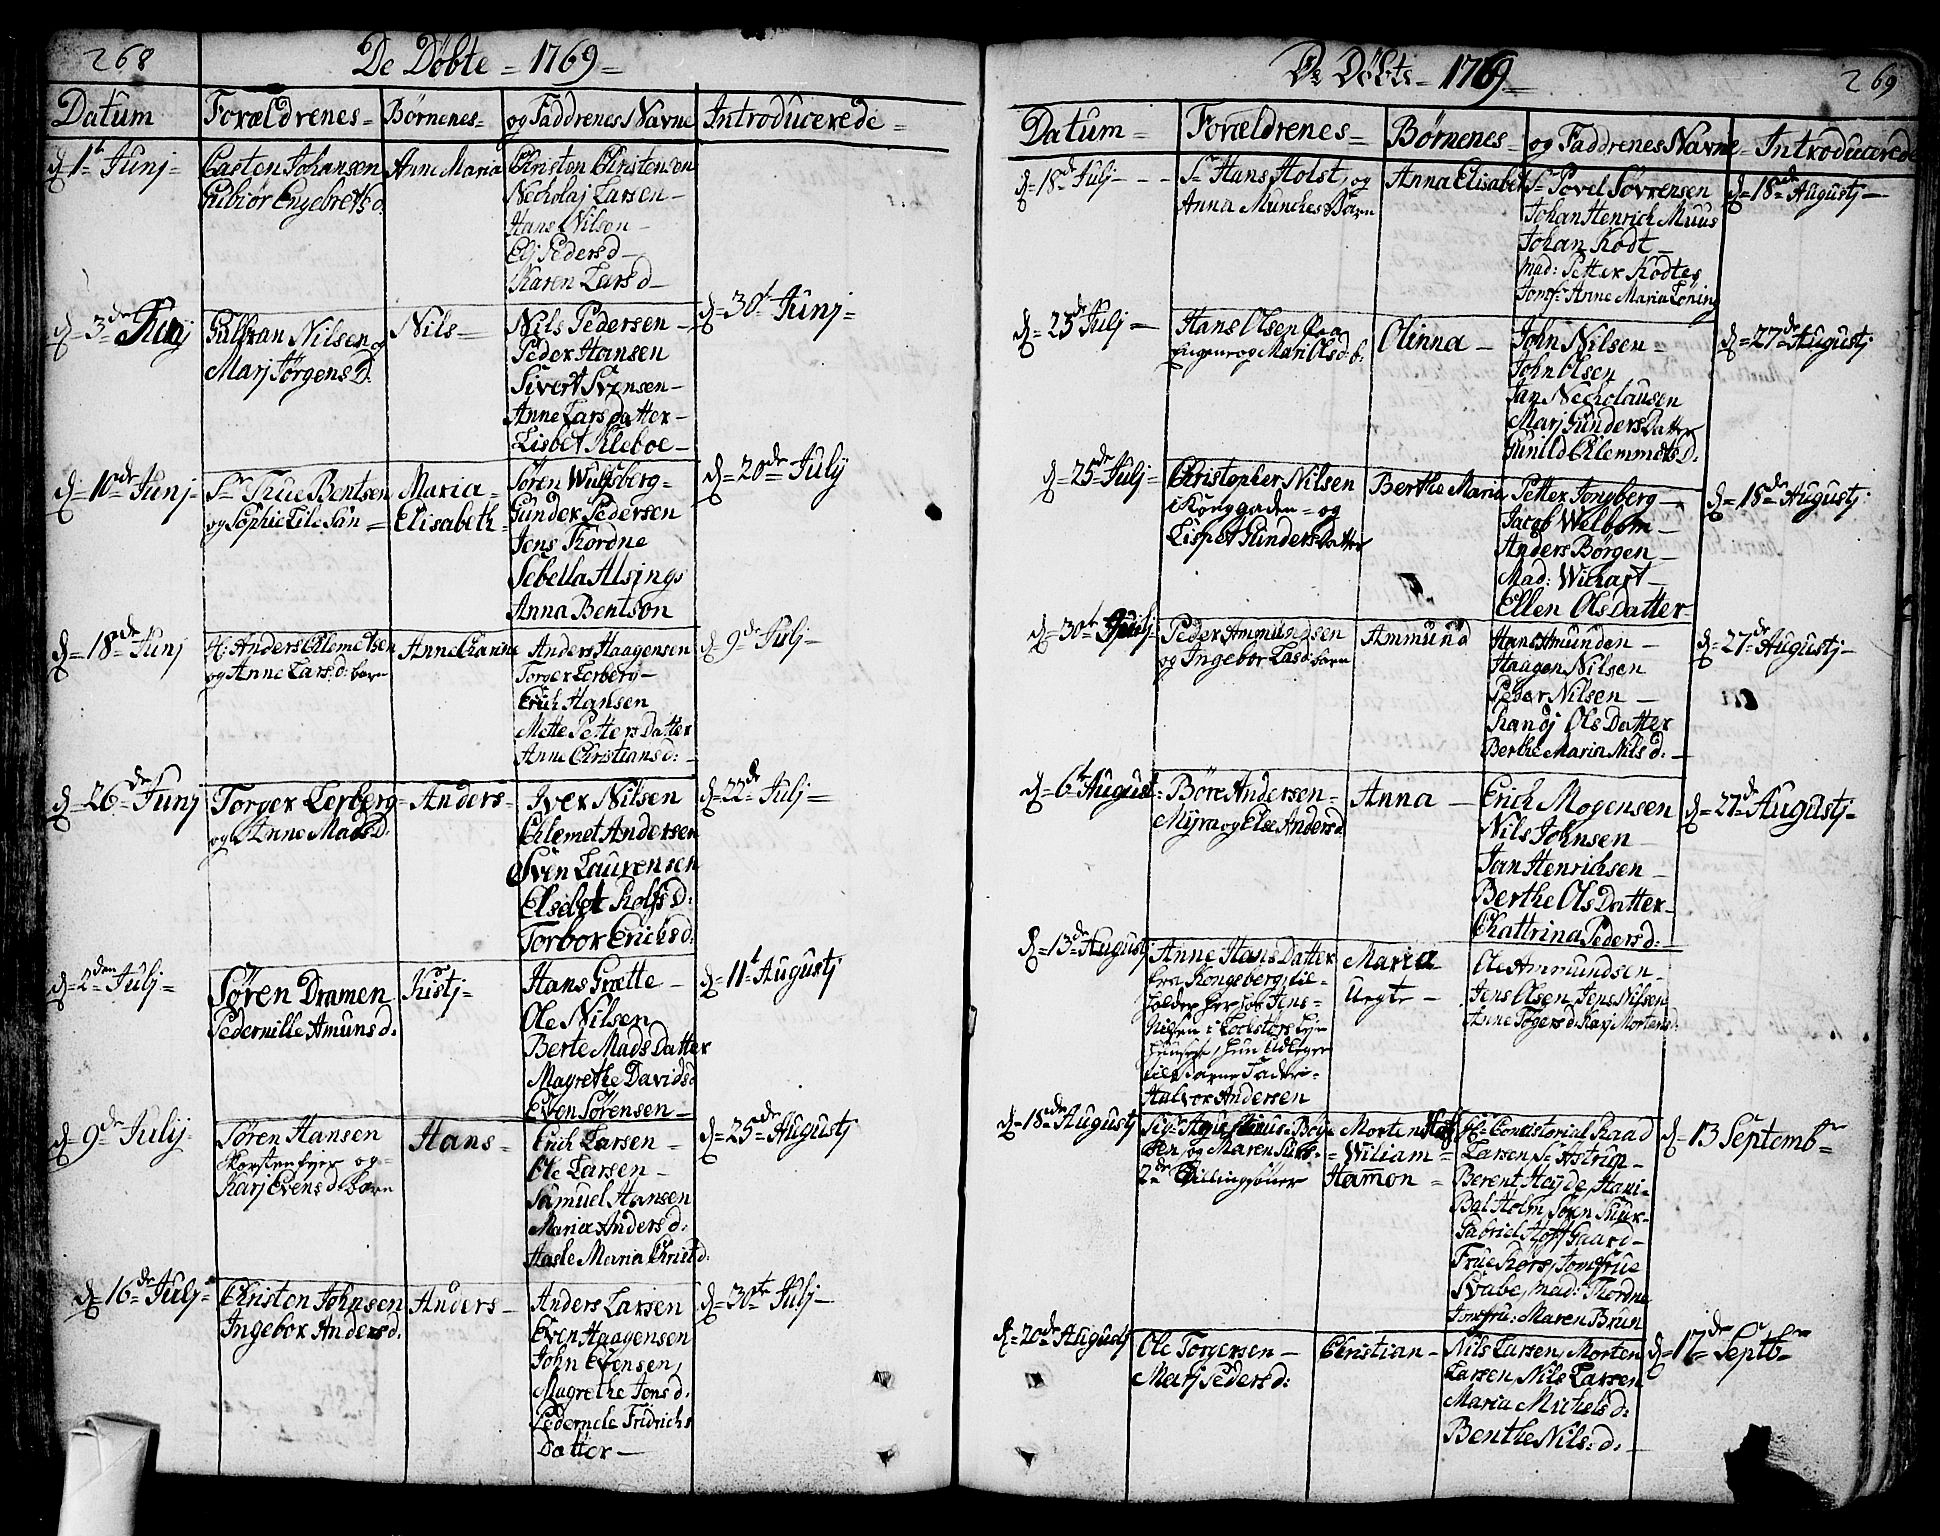 268
De Døbte - 1769 -
Datum
Forældrenes -
Børnenes -
og Faddrenes Navne
Introducerede -
d. 1t Junj -
Casten Johansen
Gubiør Engebretsd.
Anne Maria
Christen Christensen
Necholaj Larsen -
Hans Nilsen -
Elj Pedersd -
Karen Larsd -
d. 3de Junj
Gulbran Nilsen og
Marj JørgensD.
Nils -
Nils Pedersen -
Peder Hansen
Sivert Svensen -
Anne Larsdatter -
Lisbet Kleboe -
d - 30t Junj -
d - 10de Junj -
Sr True Bentsen
og Sophie Lilesan =
Maria -
Elisabeth -
Søren Wulfsberg -
Gunder Pedersen
Jens Thordne
Sebella Alsings
Anna Bentson
d - 20de July
d - 18de Junj
H: Anders Clemetsen
og Anne Larsd: barn
Anne Chanine
Anders Haagensen
Torger Lerberg -
Erich Hansen
Mette PettersDatter
Anne Christiansd: -
d - 9de Julj -
d - 26de Junj
Torger Lerberg -
og Anne MadsD.
Anders -
Iver Nilsen
Clemet Andersen
Sven Laurensen
Elsebet Rolfsd:
Torbor Erichsd:
d - 22de Julj =
d - 2den Julj -
Søren Dramen
Pedernille Amunsd.
Justj -
Hans Grette -
Ole Nilsen
Berte MadsDatter
Magrethe Davidsd
Even Sørensen -
d - 11t Augustj
d - 9de Julij -
Søren Hansen
Skorstenfejer og -
Karj Evensd. barn
Hans -
Erich Larsen -
Ole Larsen -
Samuel Hansen
Maria Andersd.
Aasle Maria Christd.
d - 25de Augustj
d - 16de Julj -
Christen Johnsen
Ingebor Andersd.
Anders -
Anders Larsen
Even Haagensen
John Evensen,
Magrethe Jonsd.
Pedernele Fridrichs
Datter -
d - 30te Julj -
De Døbte - 1769 -
269
Datum -
Forældrenes -
Børnenes -
og Faddrenes Navne -
Introducerede
d - 18de Julj - -
Sr Hans Holst, og
Anna Munches Barn
Anna Elisabet
Sr Povel Søvrensen
Johan Henrich Muus
Johan Kodt -
Mad: Petter Kodtes
Jomf: Anne Maria Lening
d - 18de Augustj -
d - 23de Julj -
Hans Olsen fra
Eugene og Mari Olsd. b.
Olinna -
John Nilsen -
John Olsen
Jan Necholausen
Marj GundersDatter
Gunild ClemmetsD.
d - 27de Augustj
d - 25de Julj -
Christopher Nilsen
i Konggaden - og
Lispet GundersDatter
Berthe Maria
Petter Jongberg -
Jacob Welbom -
Anders Børgen -
Mad: Wichart -
Ellen OlsDatter
d - 18de Augustj.
d - 30t Julj -
Peder Ammundsen
og Ingebor Lasd: barn
Ammund
Hans Amunden -
Haagen Nilsen
Peder Nilsen -
Ranoj OlsDatter
Berthe Maria Nilsd. -
d - 27de Augustj -
d - 6t August:
Børe Andersen -
Myra og Else Andersd.
Anna -
Erich Mogensen
Nils Johnsen -
Jan Henrichsen -
Berthe OlsDatter -
Chattrina Pedersd: -
d - 27de Augustj -
d - 13de Augustj
Anne HansDatter
fra Kongsberg, til-
holder her hos Jens -
Nielsen i Lochstøer Eje
huuset, hun udlegger
til Barne Fader: -
Halvor Andersen
Maria
Uegte -
Ole Ammundsen -
Jens Olsen, Jens Nilsen
Anne Togersd. Karj Mortensd.
d - 18de Augustj
Sig: Agie Boye
sen, og Maren
2de Tvillingsønner
Morten
= Wiliam =
Hamon -
Hr Concistorial Raad
Larsen Sr Astrup -
Berent Heyde, Hani-
Bal Holm, Søren Snur -
Gabriel Hoffgaard -
Frue Kors, Jomfrue
Svabe, mad: Thordne
Jomfru: Maren Brun
d - 13 Septembr -
d - 20de Augustj
Ole Torgersen -
Marj Pedersd:
Christian -
Nils Larsen, Morten
Larsen, Nils Larsen
Maria Michelsd:
Benthe Nils:d: -
d - 17de Septbr